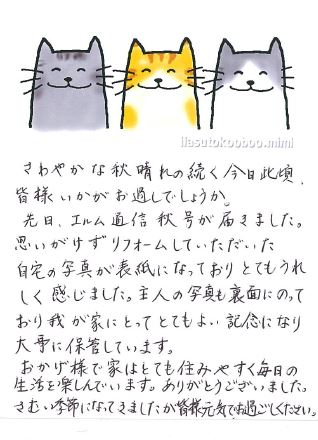 ilasutokooboo.mimi
さわやかな秋晴れの続く今日此頃、
皆様いかがお過しでしょうか。
先日、エルム通信秋号が届きました。
思いがけずリフォームしていただいた
自宅の写真が表紙になっておりとてもうれ
しく感じました。主人の写真も裏面にのって
おり我が家にとってとてもよい記念になり
大事に保管しています。
おかげ様で家はとても住みやすく毎日の
生活を楽しんでいます。ありがとうございました。
さむい季節になってきましたが皆様元気でお過ごしください。